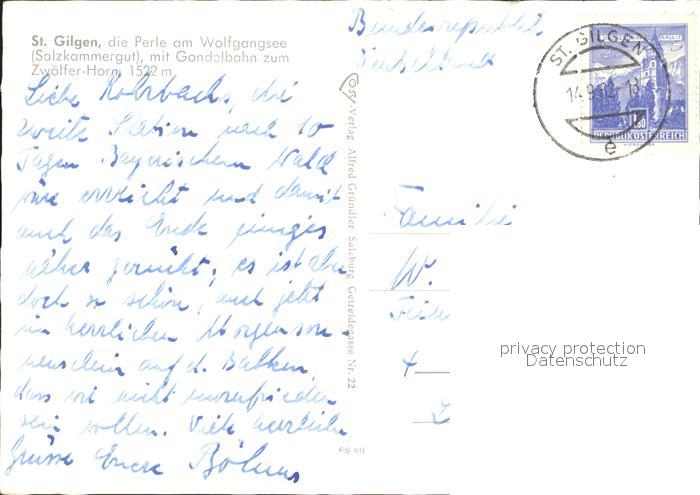 St. Gilgen, die Perle am Wolfgangsee
(Salzkammergut), mit Gondelbahn zum
Zwölfer-Horn, 1522 m
Liebe Rohrbachs, die
zweite Station nach 10
Tagen Bayerischem Wald
wäre erreicht und damit
auch das Ende einiges
näher gerückt; es ist aber
doch so schön, auch jetzt
im herrlichen Morgenson-
nenschein auf d. Balkon,
dass wir nicht unzufrieden
sein wollen. Viele herzliche
Grüsse Eure Böhms
Cosy-Verlag Alfred Gründler Salzburg Getreidegasse Nr. 22
FS 60
Bundesrepublik
Deutschland
ST. GILGEN
14.9.62-18
e
1.80
REPUBLIK ÖSTERREICH
Familie
W.
4
privacy protection
Datenschutz